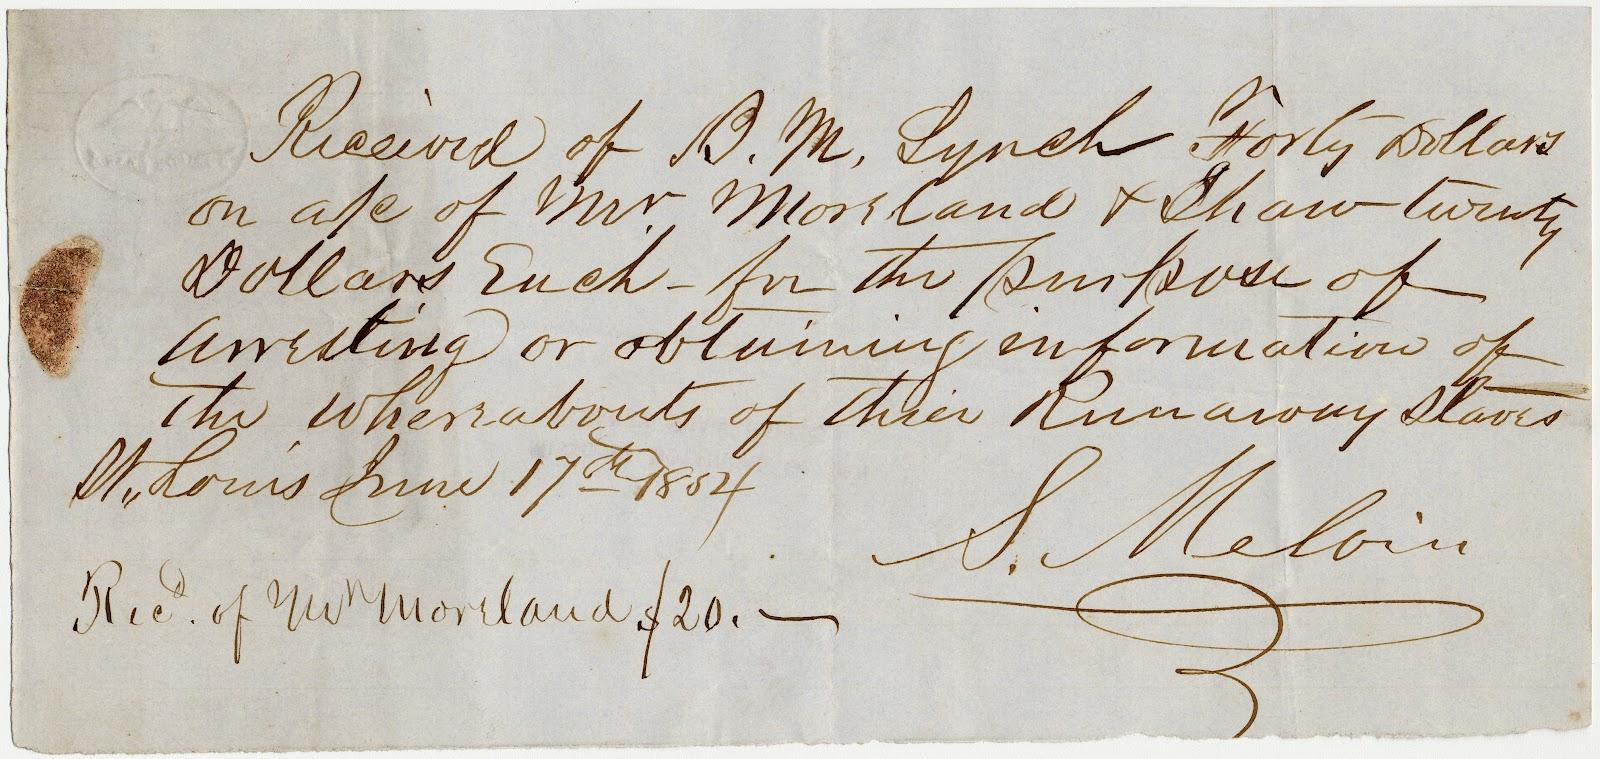 Received of B. M. Lynch Forty Dollars
on a/c of Mr. Moreland & Shaw twenty
Dollars Each - for the purpose of
arresting or obtaining information of
the whereabouts of thier Runaway Slaves
St. Louis June 17th 1854
S. Melvin
Recd. of Mr Moreland $20.